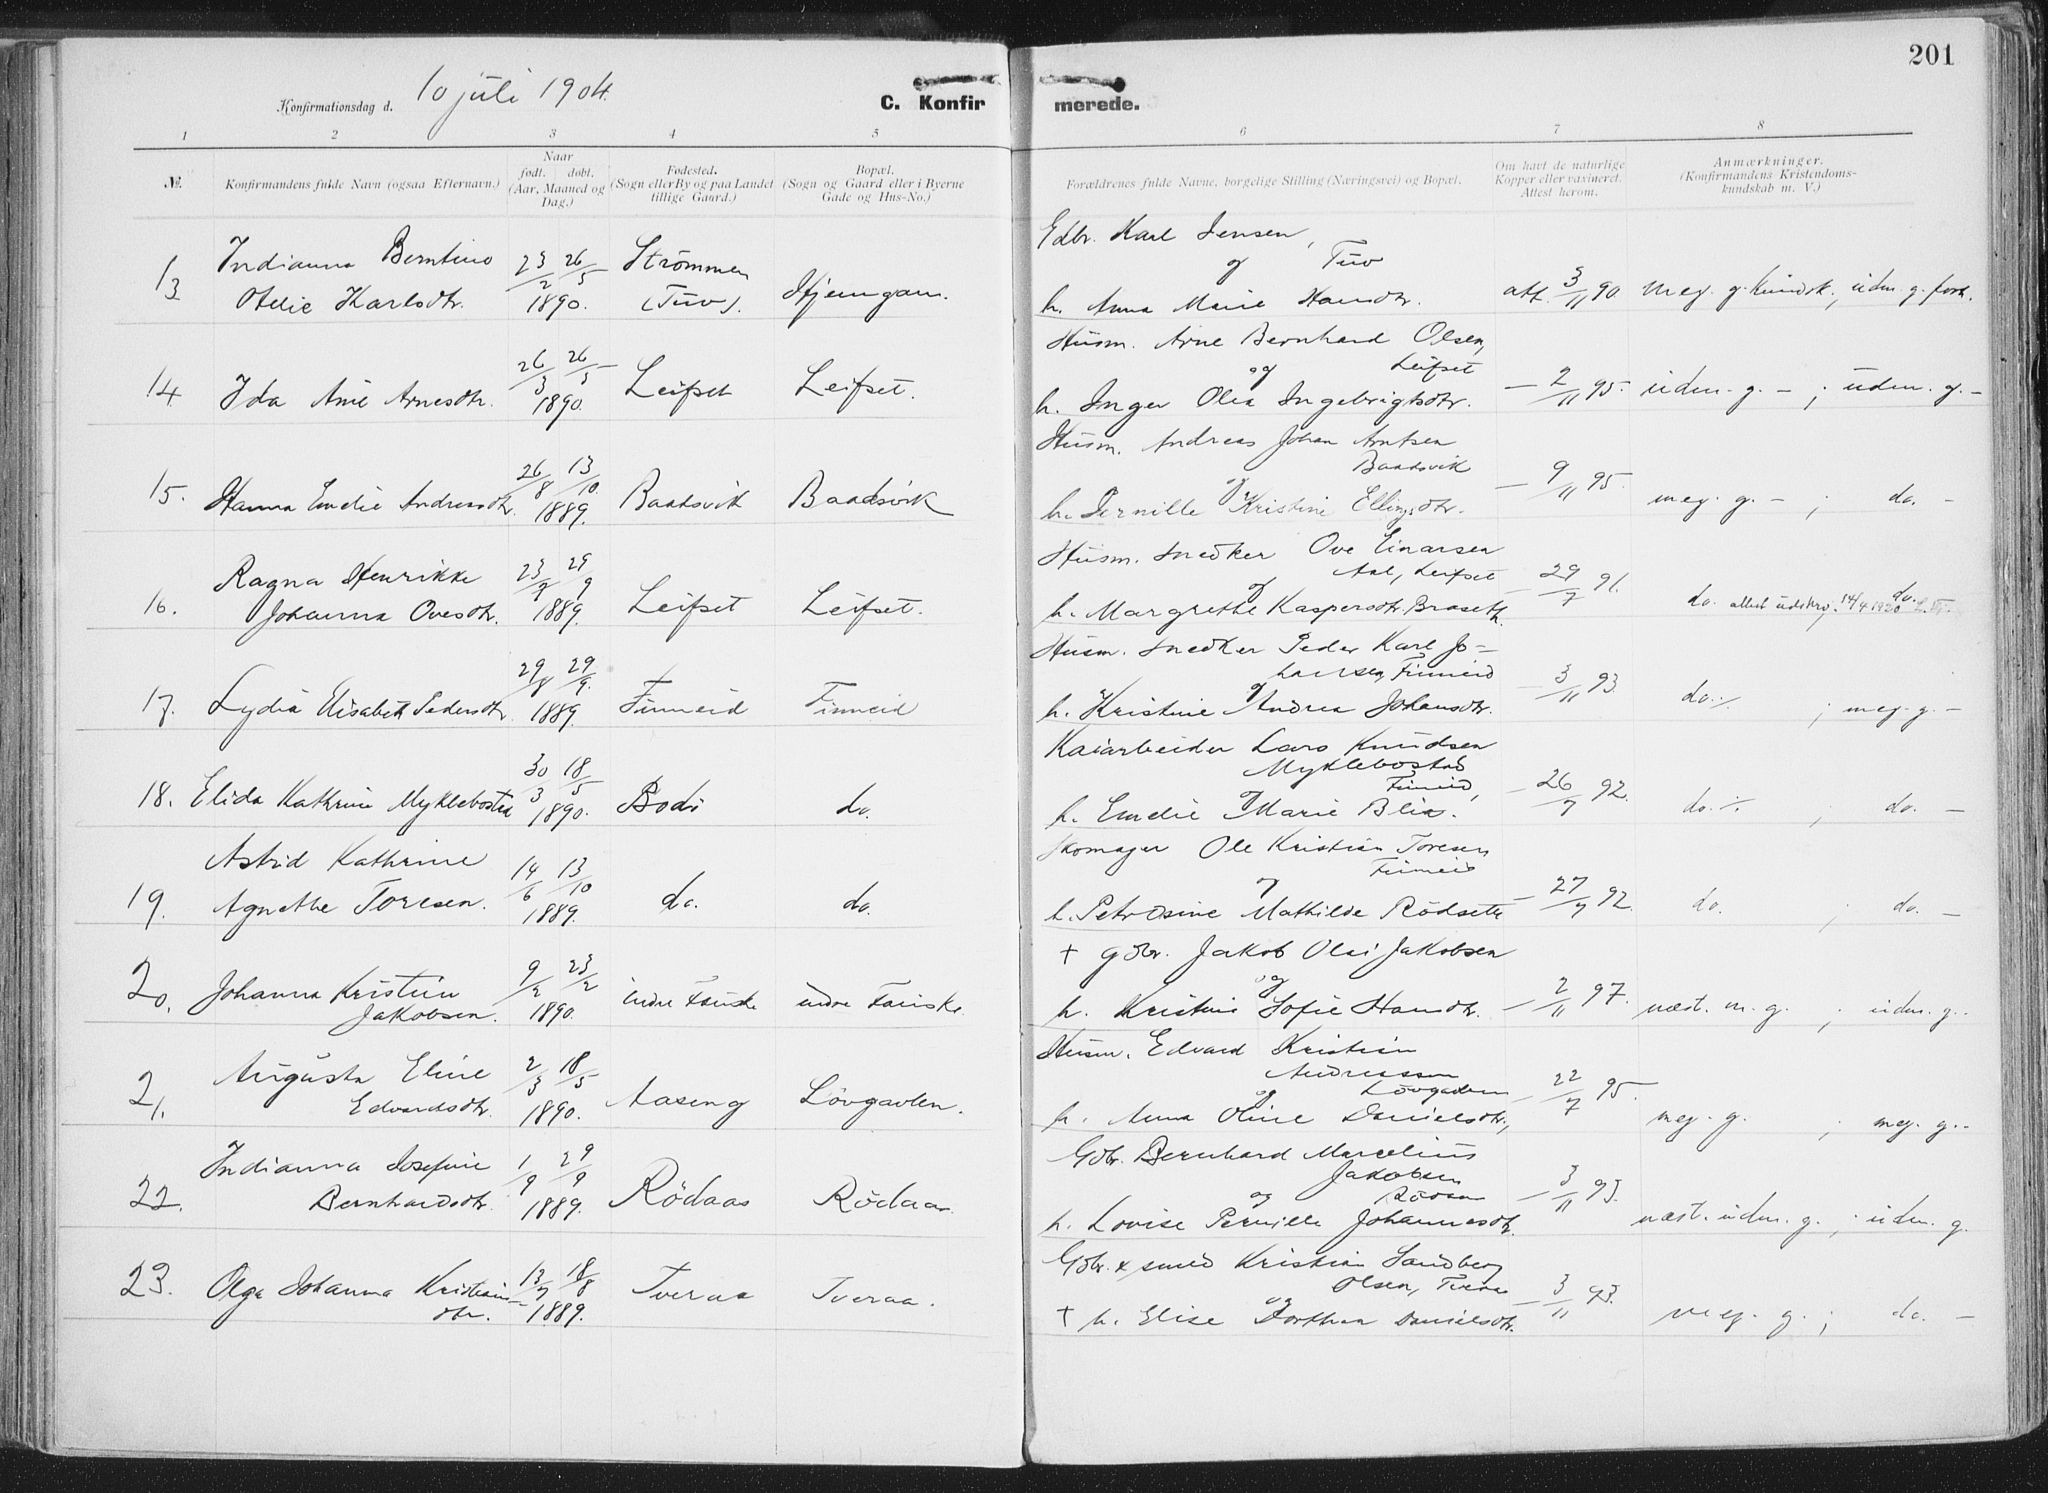 201
Konfirmationsdag d. 10 juli 1904.
C. Konfirmerede.
1 2 3 4 5 6 7 8
№.
Konfirmandens fulde Navn (ogsaa Efternavn.)
Naar født. døbt. (Aar, Maaned og Dag.)
Fødested. (Sogn eller By og paa Landet tillige Gaard.)
Bopæl. (Sogn og Gaard eller i Byerne Gade og Hus-No.)
Forældrenes fulde Navne, borgelige Stilling (Næringsvei) og Bopæl.
Om havt de naturlige Kopper eller vaxineret. Attest herom.
Anmærkninger. (Konfirmandens Kristendoms-kundskab m. V.)
13 Indianna Berntine Otelie Karlsdtr. 23/2 26/5 1890. Strömmen (Tuv). Hjemgam.
Gdbr. Karl Jensen, Tuv
og
h. Anna Marie Hansdtr. att. 3/11 90. meg. g. kundsk., uden. g. forh.
14 Ida Anie Arnesdtr. 26/3 26/5 1890. Leifset Leifset.
Husm. Arne Bernhard Olsen, Leifset
og
h. Inger Olea Ingebrigtsdtr. – 2/11 95. uden. g. – ; uden. g. –
15. Hanna Emelie Andreasdtr. 26/8 13/10 1889. Baadsvik Baadsvik
Husm. Andreas Johan Arntsen Baadsvik
og
h. Pernille Kristine Ellingsdtr. – 9/11 95. meg. g. – ; do. –
16. Ragna Henrikke Johanna Ovesdtr. 23/7 29/9 1889. Leifset Leifset.
Husm. snedker Ove Einarsen Aal, Leifset
og
h. Margrethe Kaspersdtr. Braseth. – 29/7 91. do. attest udskrev. 14/4 1920 do.
17. Lydia Elisabet Pedersdtr. 29/8 29/9. 1889. Finneid Finneid
Husm. snedker Peder Karl Jo=
hansen, Finneid
og
h. Kristine Andrea Johansdtr. – 3/11 93. do. ; meg. g. –
18. Elida Kathrine Myklebostad 30/3 18/5 1890. Bodö do.
Kaiarbeider Lars Knudsen
Myklebostad Finneid,
og
h. Emelie Marie Blix. – 26/7 92. do. ; do. –
19. Astrid Kathrine Agnethe Toresen. 14/6 13/10 1889. do. do.
Skomager Ole Kristian Toresen Finneid
og
h. Petrosine Mathilde Rödseth – 27/7 92. do. ; do. –
20. Johanna Kristin Jakobsen. 9/2 23/2 1890. indre Fauske indre Fauske
† gdbr. Jakob Olai Jakobsen
og
h. Kristine Sofie Hansdtr. – 2/11 97. næst. m. g. ; uden. g.
21. Augusta Eline Edvardsdtr. 2/3 18/5 1890. Aaseng Lövgavlen.
Husm. Edvard Kristian
Andreassen Lövgavlen
og
h. Anna Oline Danielsdtr., – 22/7 95. meg. g. ; meg. g.
22. Indianna Josefine Bernhardsdtr. 1/9 29/9 1889. Rödaas Rödaas.
Gdbr. Bernhard Marcelius
Jakobsen Rödaas
og
h. Lovise Pernille Johannesdtr. – 3/11 93. næst. uden. g. ; uden. g.
23. Olga Johanna Kristians=
dtr. 13/7 18/8 1889. Tveraa Tveraa.
Gdbr. & smed Kristian Sandberg
Olsen, Tveraa
og
† h. Elise Dorthea Danielsdtr. – 3/11 93. meg. g. ; do. –